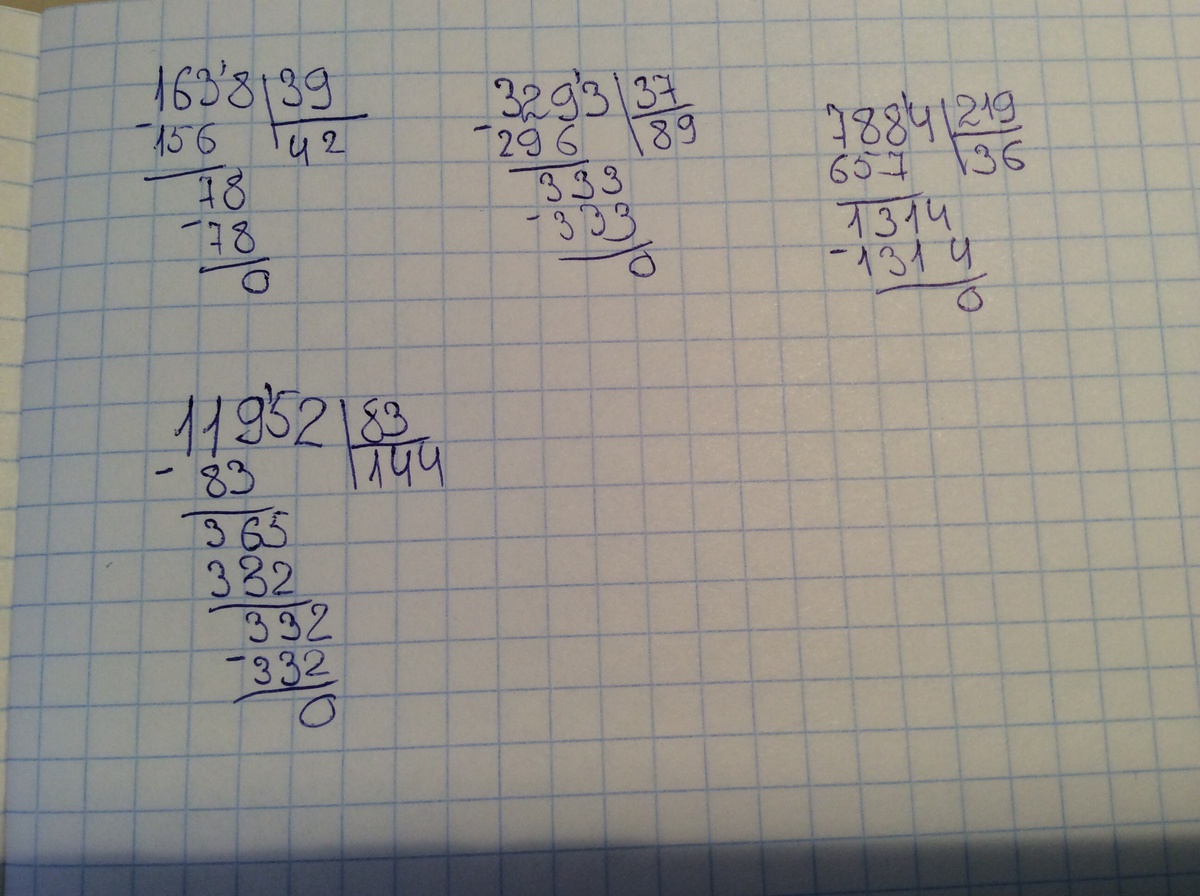 1638 39
-156 42
78
-78
0
3293 37
-296 89
333
-333
0
7884 219
657 36
1314
-1314
0
11952 83
-83 144
365
332
332
-332
0